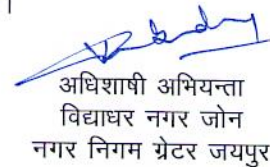 अधिशाषी अभियन्ता
विद्याधर नगर जोन
नगर निगम ग्रेटर जयपुर